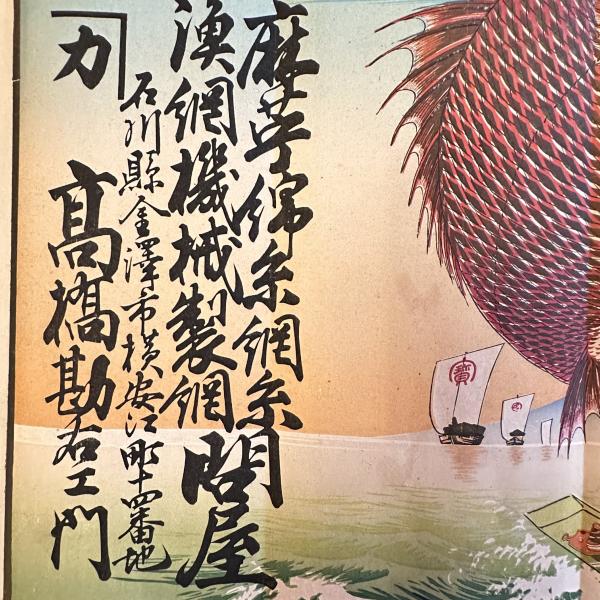 麻苧綿糸網糸
漁網機械製網
問屋
石川縣金澤市横安江町十四番地
カ
高橋勘右エ門
寳